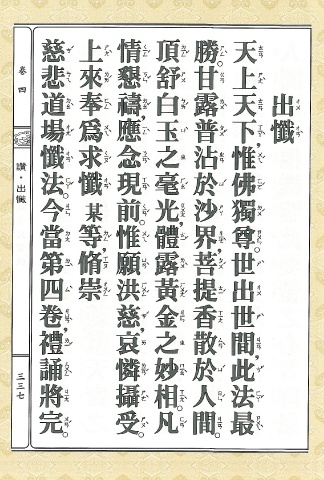 出懺
天上天下，惟佛獨尊。世出世間，此法最
勝。甘露普沾於沙界，菩提香散於人間。
頂舒白玉之毫光，體露黃金之妙相。凡
情懇禱，應念現前。惟願洪慈，哀憐攝受。
上來奉為求懺某等，脩崇
慈悲道場懺法。今當第四卷，禮誦將完。
卷四
讚·出懺
三三七